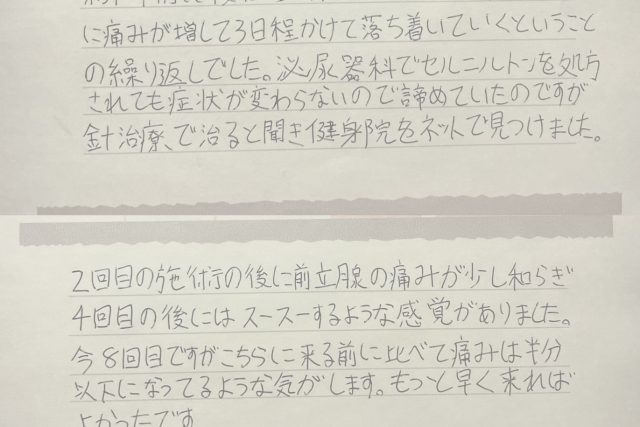 に痛みが増して3日程かけて落ち着いていくということ
の繰り返しでした。泌尿器科でセルニルトンを処方
されても症状が変わらないので諦めていたのですが
針治療、で治ると聞き健身院をネットで見つけました。
2回目の施術の後に前立腺の痛みが少し和らぎ
4回目の後にはスースーするような感覚がありました。
今8回目ですがこちらに来る前に比べて痛みは半分
以下になってるような気がします。もっと早く来れば
よかったです